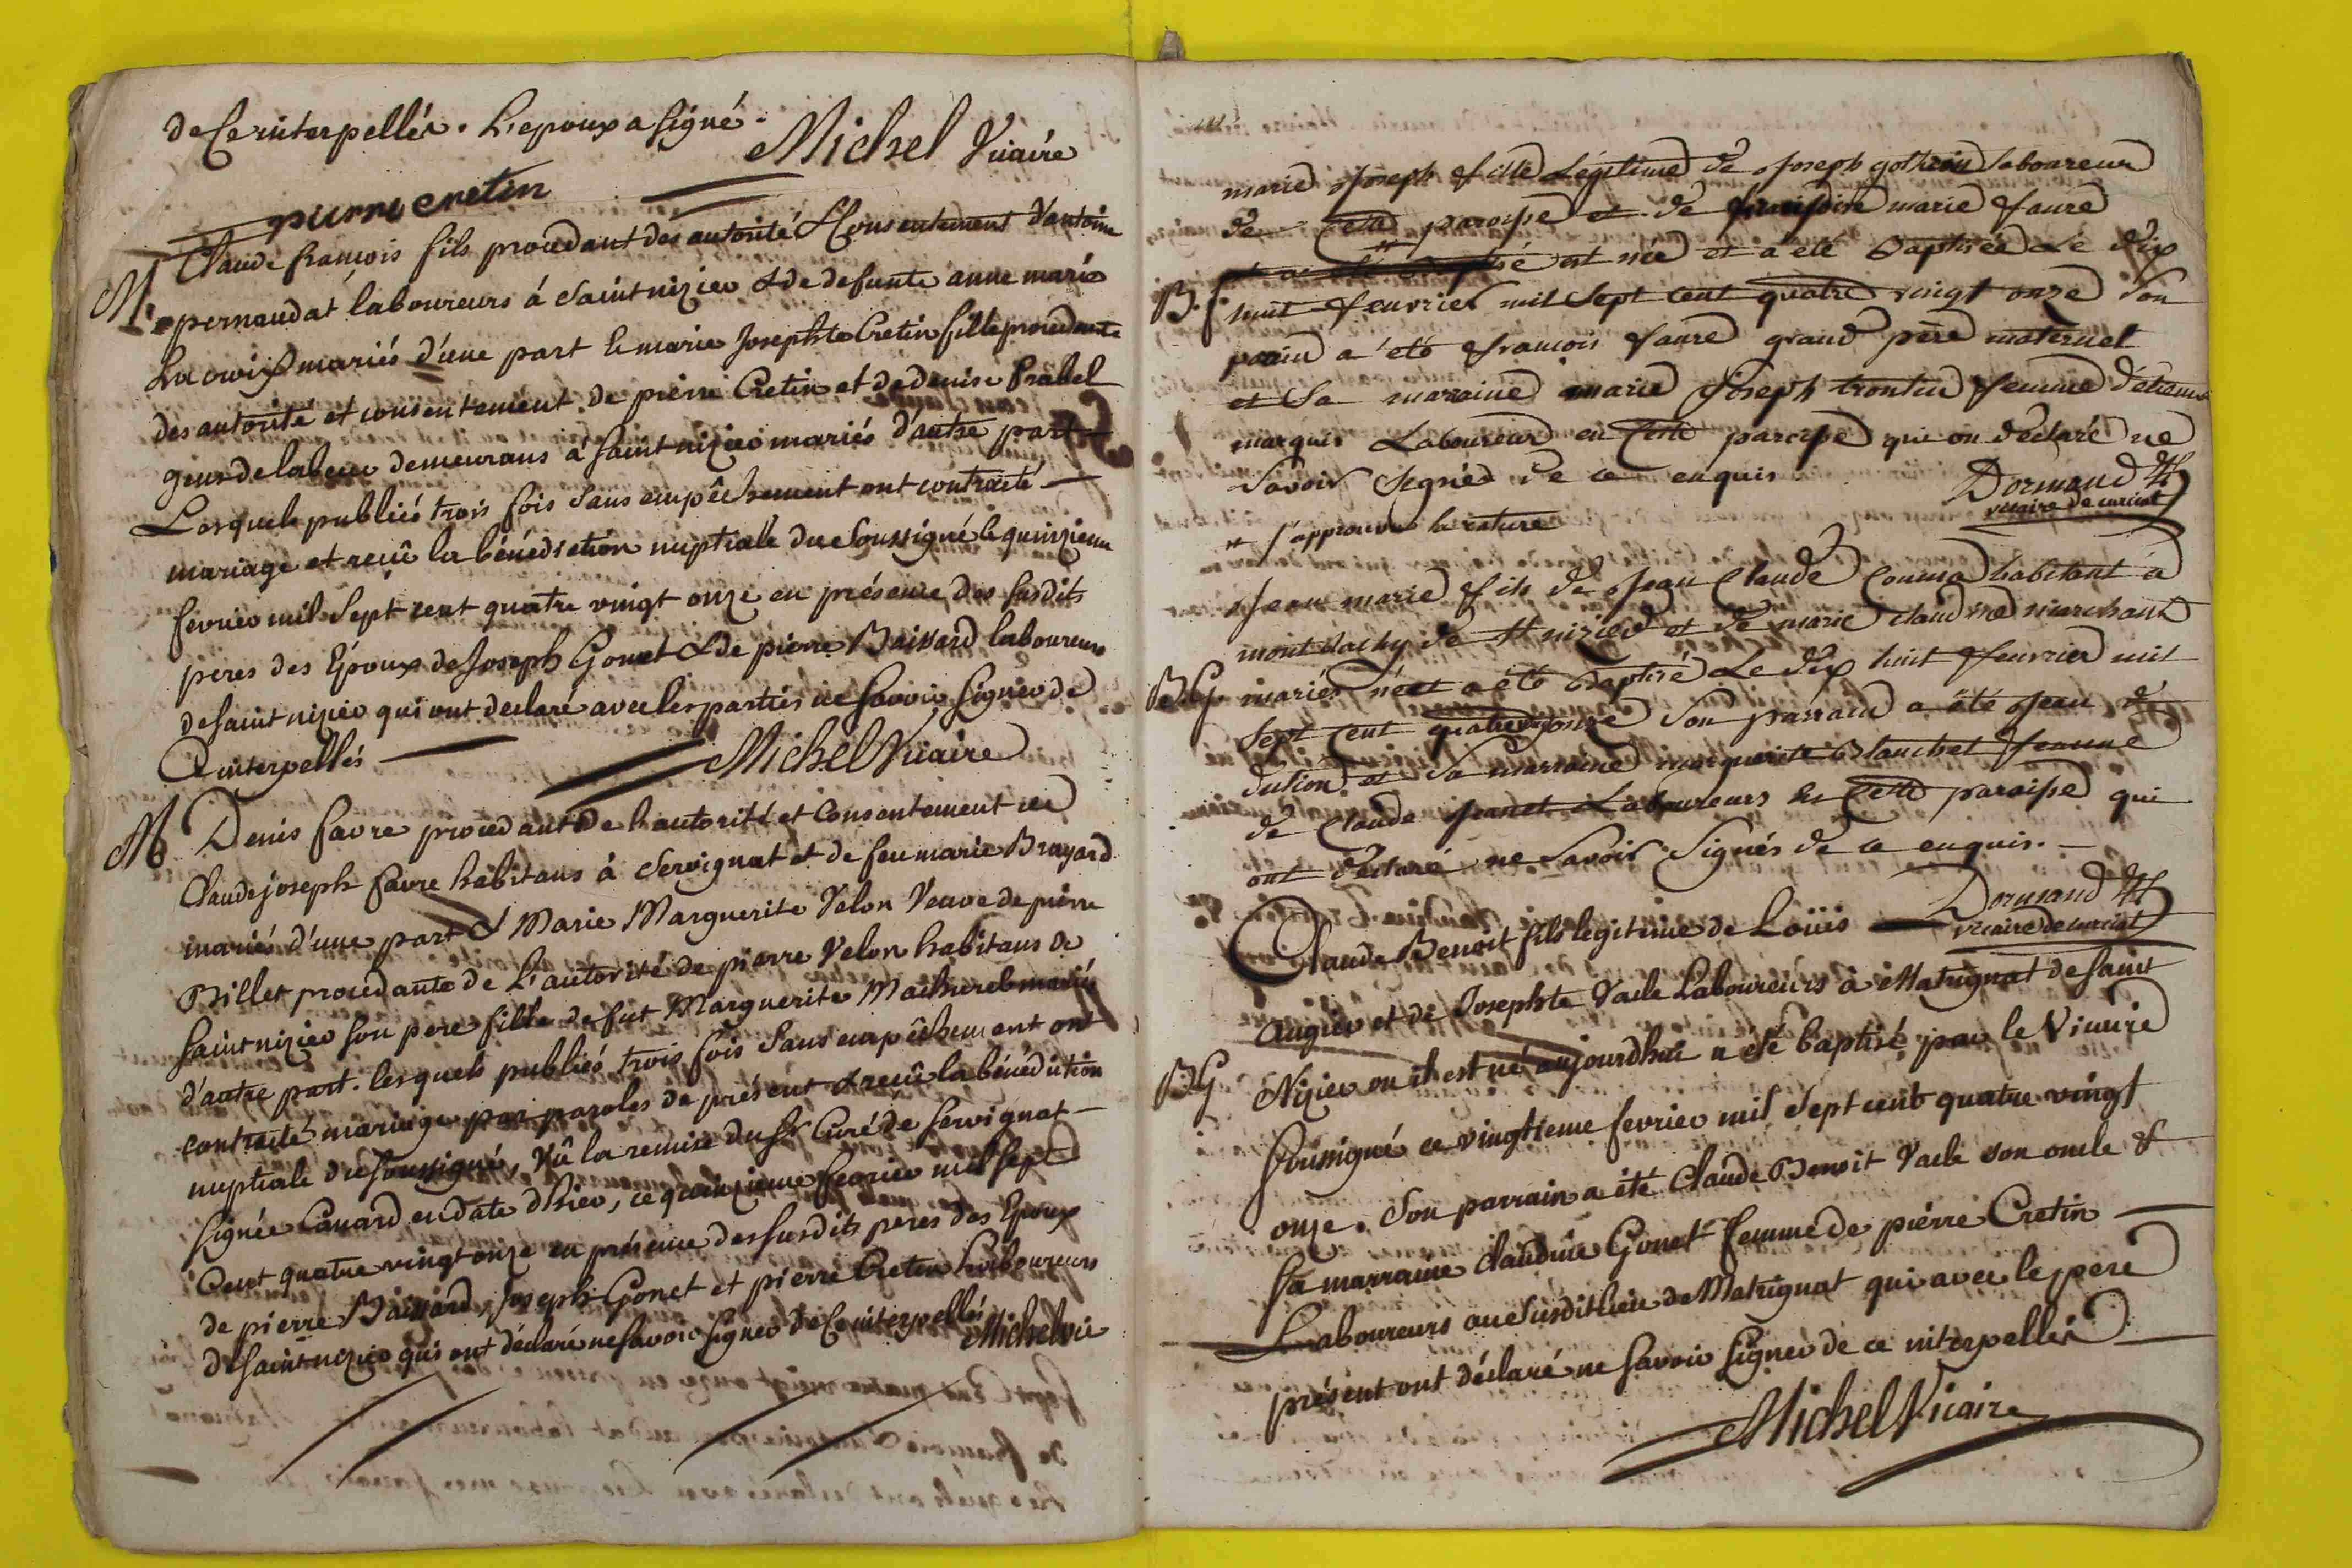 de Ce interpellés. L'epoux a signé.
Michel Vicaire
pierre cretin
Claude françois fils procédant des autorité & Consentement d'antoine
M. pernaudat laboureurs á Saint nizier & de defunte anne marie
Lacroix mariés d'une part & marie Josephte Cretin fille procedante
des autorité et consentement de pierre Cretin et de denise Prabel
gens de labeur demeurans à saint nizier mariés d'autre part
Lesquels publiés trois fois sans empêchement ont contracté
mariage et reçû la bénédiction nuptialle du Soussigné le quinzieme
fevrier mil Sept cent quatre vingt onze en présence des susdits
peres des Epoux de Joseph Gonet & de pierre Baissard laboureurs
de saint nizier qui ont declaré avec les parties ne savoir signer de
Ce interpellés
Michel Vicaire
M Denis favre procedant de l'autorité et Consentement de
Claude joseph favre habitans à Servignat et de feu marie Brayard
mariés d'une part & Marie Marguerite Velon Veuve de pierre
Billet procédante de L'autorité de pierre Velon habitans de
saint nizier son pere fille de fut Marguerite mariés
d'autre part. lesquels publiés trois fois sans empêchement ont
contracté mariage par paroles de présent & reçû la bénédiction
nuptiale du soussigné, Vû la remise du Sr Curé de Servignat
signée Canard en date d'hier, ce quinzieme fevrier mil sept
Cent quatre vingt onze en présence des susdits peres des Epoux
de pierre Baissard, Joseph Gonet et pierre Cretin laboureurs
de saint nizier qui ont déclaré ne savoir signer de Ce interpellés
Michel vic
marie Joseph fille Légitime de Joseph gothion laboureur
de Cette paroisse et de françoise marie faure
B.f est née et a été Baptisée Le dix
huit feuvrier mil Sept cent quatre vingt onze Son
parain a été françois faure grand père maternel
et Sa maraine marie Joseph trontin femme d'etienne
marquis Laboureur en Cette paroisse qui on déclaré ne
Savoir Signés de ce enquis
Dormand
vicaire de curciat
j'approuve la rature
Jean marie fils de Jean Claude Comma habitant á
mont de St nizier et de marie claudine marchand
B.G. mariés né et a été Baptisé Le dix huit feuvrier mil
Sept Cent onze Son parrain a été Jean
dution et Sa marraine marguerite Blanchet femme
de Claude Jeanet Laboureurs en Cette paroisse qui
ont déclaré ne Savoir Signés de ce enquis.
Dormand
vicaire de curciat
Claude Benoit fils legitime de Loüis
augier et de Josephte Vacle Laboureurs à Matrignat de Saint
BG Nizier ou il est né aujourdhui a été baptisé par le Vicaire
soussigné ce vingtieme fevrier mil Sept cent quatre vingt
onze. Son parrain a été Claude Benoit Vacle son oncle &
Sa marraine Claudine Gonet femme de piérre Cretin
Laboureurs au susdit lieu de Matrignat qui avec le pere
présent ont déclaré ne savoir signer de ce interpellés
Michel Vicaire